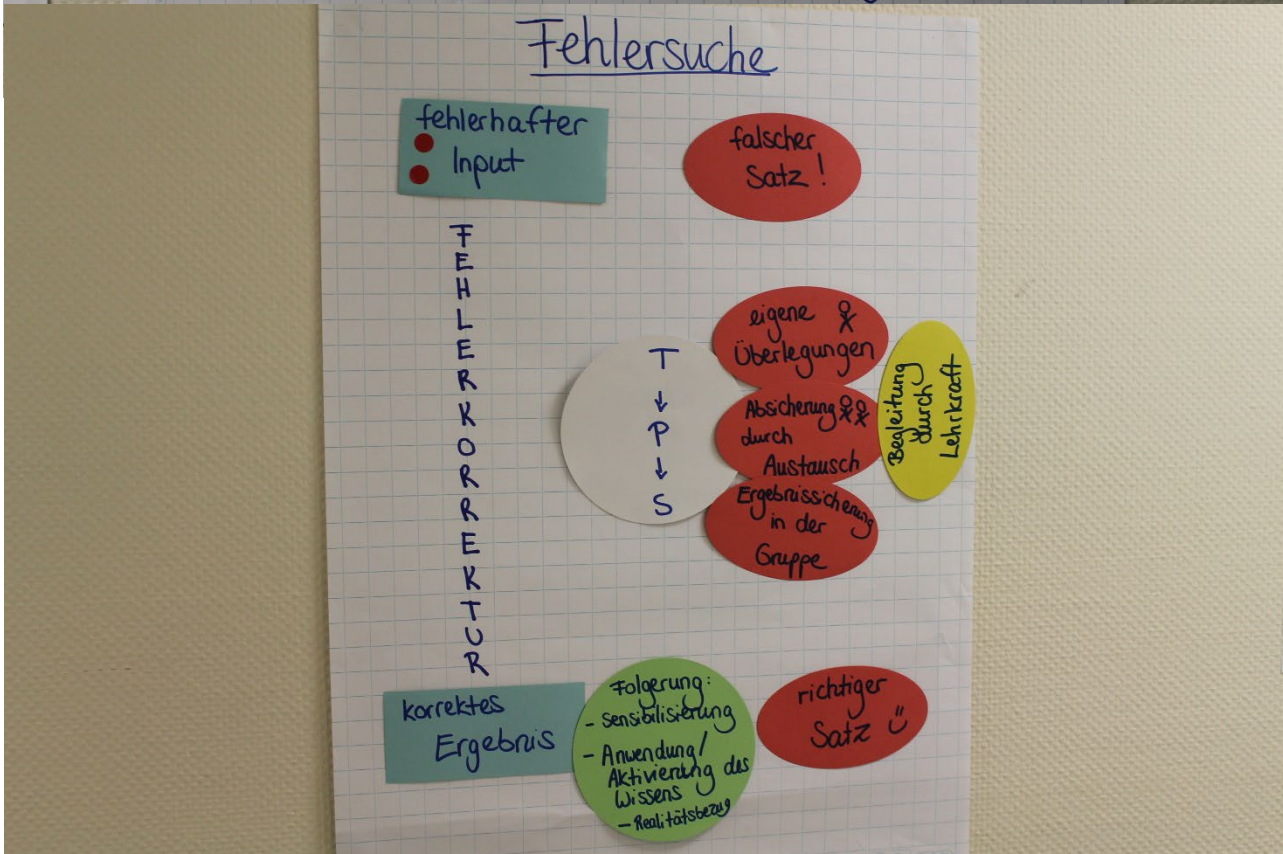 Fehlersuche
fehlerhafter
Input
falscher
Satz!
FEHLERKORREKTUR
T
↓
P
↓
S
eigene
Überlegungen
Absicherung
durch
Austausch
Ergebnissicherung
in der
Gruppe
Begleitung
durch
Lehrkraft
korrektes
Ergebnis
Folgerung:
- Sensibilisierung
- Anwendung/
Aktivierung des
Wissens
- Realitätsbezug
richtiger
Satz